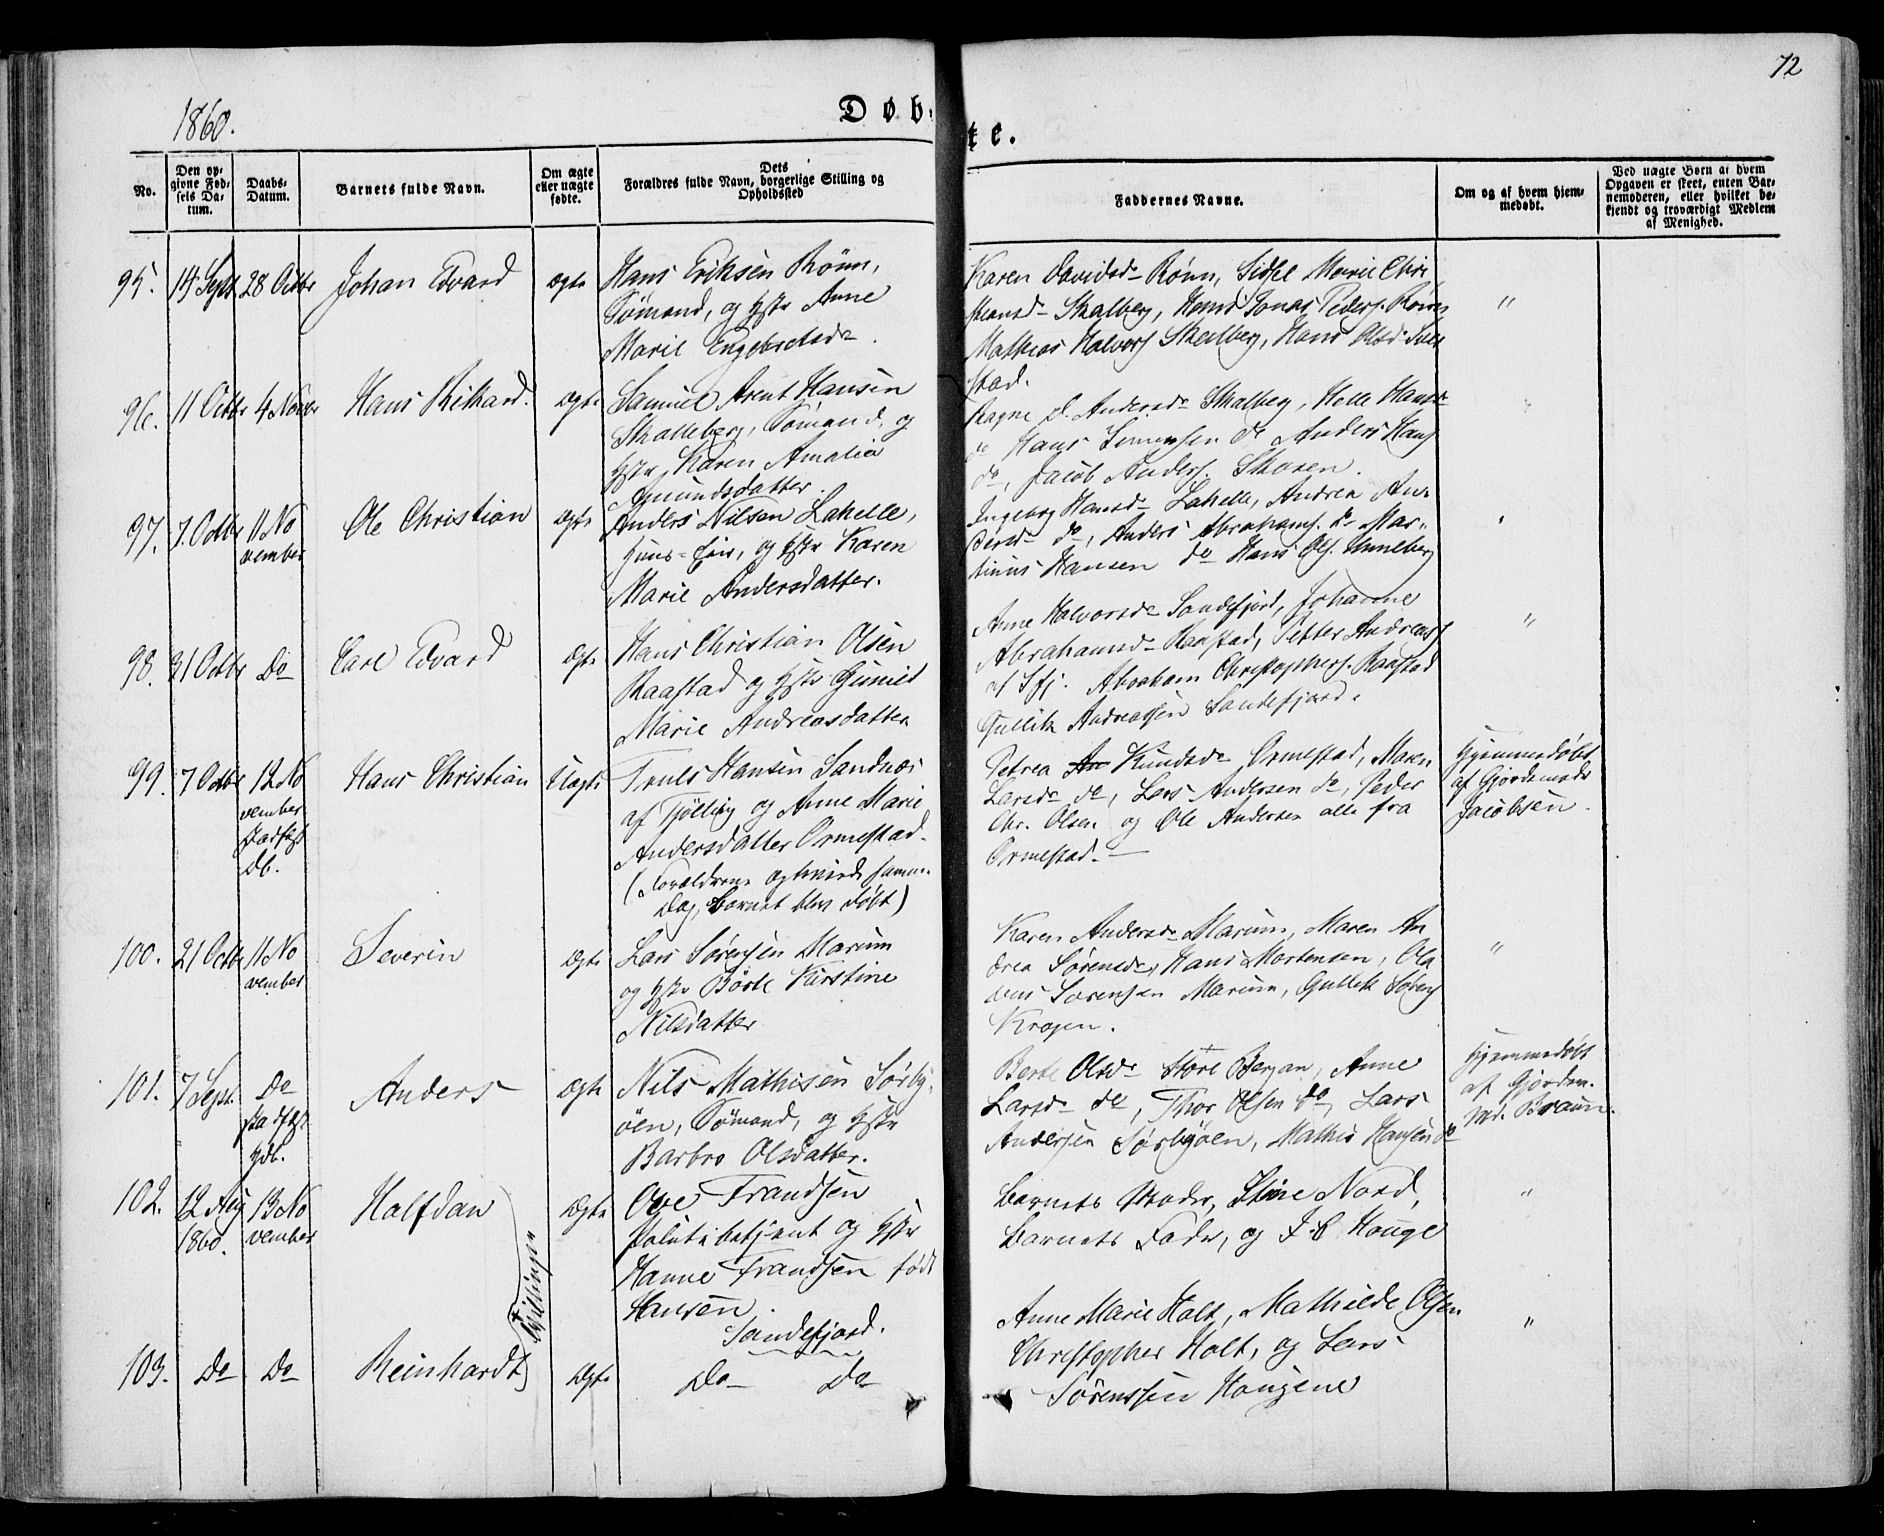 72
1860.
Døb-
te.
No.
Den op-
givne Fød-
sels Da-
tum.
Daabs-
Datum.
Barnets fulde Navn.
Om ægte
eller uægte
fødte.
Dets
Forældres fulde Navn, borgerlige Stilling og
Opholdssted
Faddernes Navne.
Om og af hvem hjem-
medøbt.
Ved uægte Børn af hvem
Opgaven er skeet, enten Bar-
nemoderen, eller hvilket be-
kjendt og troværdigt Medlem
af Menighed.
95. 14 Sept 28 Octbr Johan Edvard ægte
Hans Eriksen Rönn,
Sömand, og Hstr Anne
Marie Engebretsdr.
Karen Davidsdr Rönn, Sidsel Marie Chri
stiansdr Skalberg, Hans Jonas Peders. Rönn
Mathias Halvors Skalberg, Hans Olsd
stad.
"
96. 11 Octbr 4 Novbr Hans Rikard. ægte
Samuel Arent Hansen
Skalleberg, Sömand, og
Hstr Karen Amalia
Amundsdatter.
Andersdr Skalberg, Helle Hansdr
do Hans Simensen do Anders Hans
do, Jacob Anders. Skoven.
97. 7. Octbr 11 No
vember
Ole Christian ægte
Anders Nilsen Lahelle,
og Hstr Karen
Marie Andersdatter.
Ingeborg Hansdr Lahelle, Andrea An-
dersdr do, Anders Abrahams. do Mar-
tinius Hansen do Hans Ols. Unneberg
98. 31 Octbr Do Carl Edvard ægte
Hans Christian Olsen
Raastad og Hstr Gunild
Marie Andreasdatter
Anne Halvorsdr Sandefjord, Johanne
Abrahamsdr Raastad, Petter Andreas
af Sfj. Abraham Christophers. Raastad
Gullik Andreassen Sandefjord.
"
99. 7 Octbr 12 No
vember
db.
Hans Christian Uægte
Truls Hansen Sandnæs
af Tjölling og Anne Marie
Andersdatter Ormestad.
(Forældrene ægteviede samme
Dag, Barnet blev döbt)
Petrea An Knudsdr Ormestad, Maren
Larsdr do, Lars Andersen do, Peder
Chr. Olsen og Ole Andersen alle fra
Ormestad.
Hjemmedöbt
af Gjordemoder
Jacobsen.
100. 21 Octbr 11 No
vember
Severin ægte
Lars Sørensen Marum
og Hstr Börte Kirstine
Nilsdatter
Karen Andersdr Marum, Maren An
drea Sørensdr, Hans Mortensen, Ola
vus Sørensen Marum, Gullik
Krogen.
"
101. 7 Sept. Do
Anders ægte
Nils Mathisen Sörby-
öen, Sömand, og Hstr
Barbro Olsdatter.
Berte Olsdr Store Bergan, Anne
Larsdr do, Thor Olsen do, Lars
Andersen Sörbyöen, Mathis Hansen do
Hjemmedöbt
af Gjordm.
Md. Braun.
102. 12 Aug
1860.
13 No
vember
Halfdan ægte
Tvillinger
Ove Frandsen
Politibetjent og Hstr
Hanne Frandsen född
Hansen.
Sandefjord.
Barnets Moder, Stine Nord,
Barnets Fader, og J. C Houge
"
103. Do Do Reinhardt ægte
Do Do
Anne Marie Holt, Mathilde Olsen
Christopher Holt, og Lars
Sörenssen Hougene
"